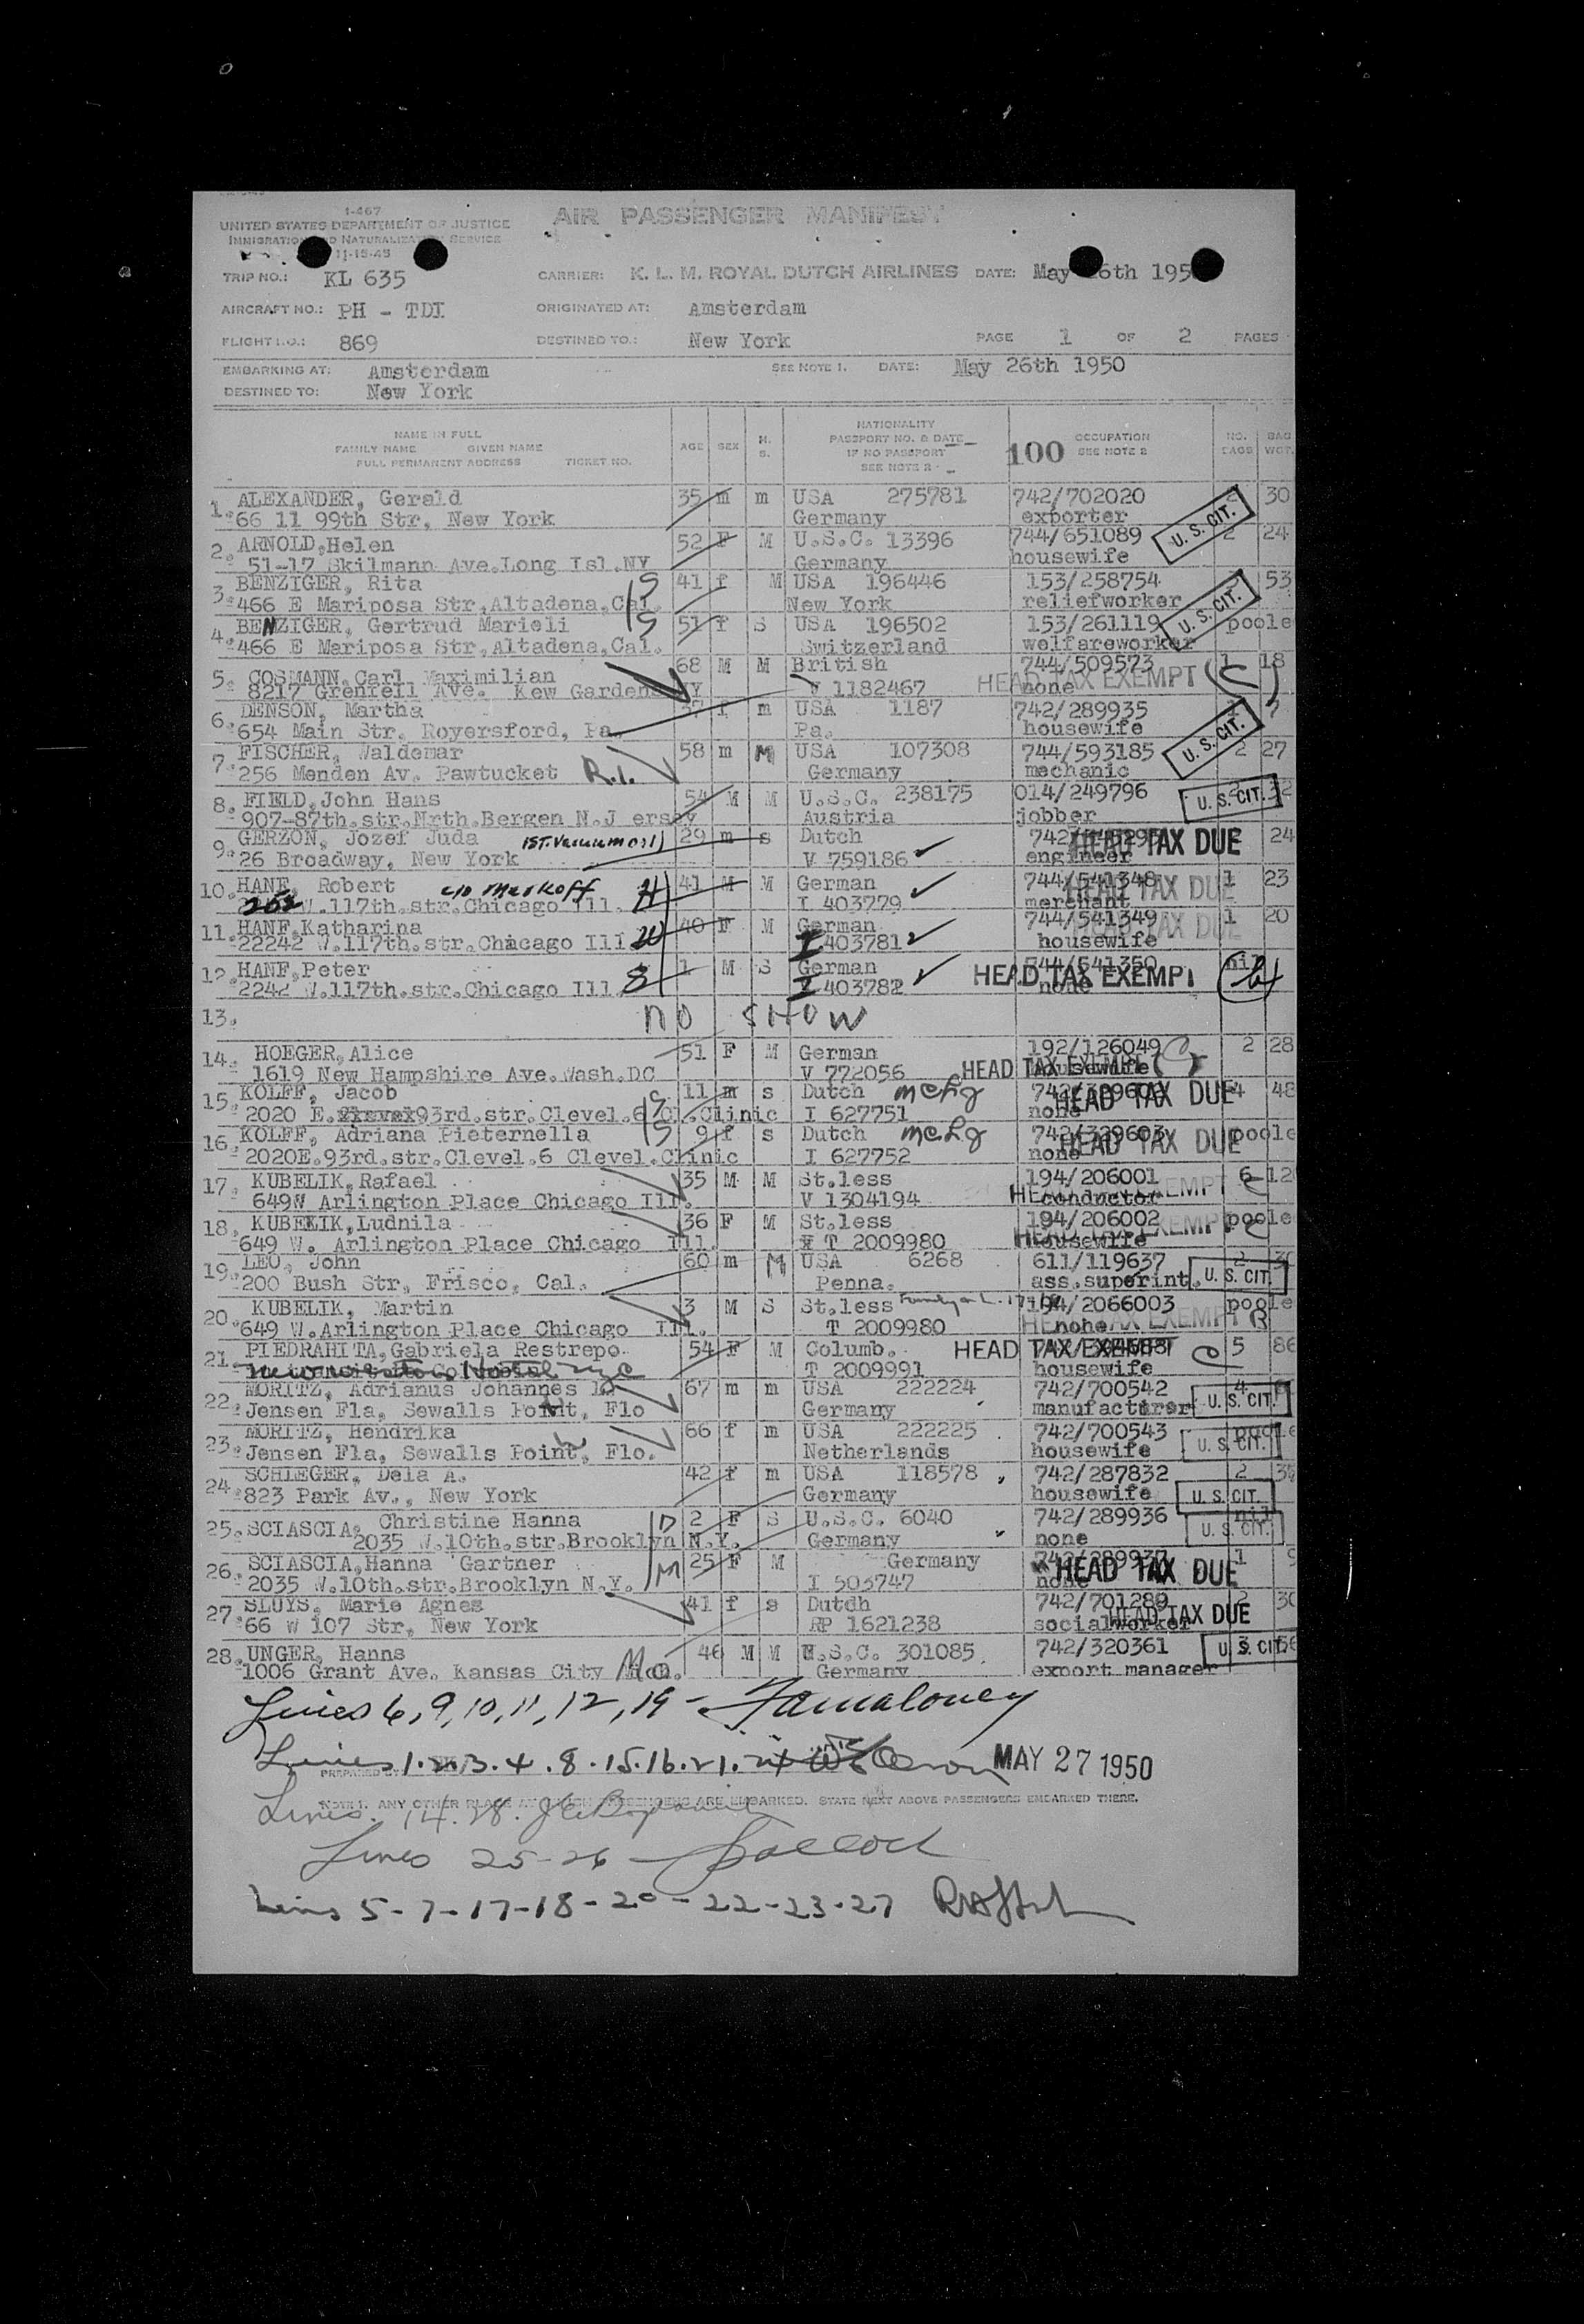 1-467
UNITED STATES DEPARTMENT OF JUSTICE
IMMIGRATION AND NATURALIZATION SERVICE
11-15-45
AIR PASSENGER MANIFEST
TRIP NO.: KL 635 CARRIER: K. L. M. ROYAL DUTCH AIRLINES DATE: May 26th 195
AIRCRAFT NO.: PH - TDI ORIGINATED AT: Amsterdam
FLIGHT NO.: 869 DESTINED TO.: New York PAGE 1 OF 2 PAGES
EMBARKING AT: Amsterdam SEE NOTE 1. DATE: May 26th 1950
DESTINED TO: New York
NAME IN FULL
FAMILY NAME GIVEN NAME
FULL PERMANENT ADDRESS TICKET NO.
AGE SEX M. S.
NATIONALITY
PASSPORT NO. & DATE
IF NO PASSPORT
SEE NOTE 2
100 OCCUPATION
SEE NOTE 2
NO. BAGS BAG WGT.
1. ALEXANDER, Gerald 35 m m USA 275781 742/702020 30
66 11 99th Str, New York Germany exporter U. S. CIT.
2. ARNOLD,Helen 52 F M U.S.C. 13396 744/651089 2 24
51-17 Skilmann Ave.Long Isl.NY Germany housewife
3. BENZIGER, Rita S 41 f M USA 196446 153/258754 53
466 E Mariposa Str,Altadena,Cal. New York reliefworker U. S. CIT.
4. BENZIGER, Gertrud Marieli S 51 f S USA 196502 153/261119 poole
466 E Mariposa Str,Altadena,Cal. Switzerland welfareworker
5. COSMANN,Carl Maximilian 68 M M British 744/509573 1 18
8217 Grenfell Ave. Kew Gardens NY V 1182467 none HEAD TAX EXEMPT
6. DENSON, Martha 37 f m USA 1187 742/289935 7
654 Main Str, Royersford, Pa. Pa. housewife U. S. CIT.
7. FISCHER, Waldemar 58 m M USA 107308 744/593185 2 27
256 Menden Av. Pawtucket R.I. Germany mechanic
8. FIELD,John Hans 54 M M U.S.C. 238175 014/249796 U. S. CIT.
907-87th.str.Nrth.Bergen N.J ersey Austria jobber
9. GERZON, Jozef Juda 29 m s Dutch HEAD TAX DUE 24
26 Broadway, New York V 759186 engineer
10. HANF, Robert c/o Markoff H 41 M M German 744/541348 1 23
W.117th.str.Chicago Ill. I 403779 merchant HEAD TAX DUE
11. HANF,Katharina W 40 F M German 744/541349 1 20
22242 W.117th.str.Chicago Ill I 403781 housewife HEAD TAX DUE
12. HANF,Peter S 1 M S German 744/541350 nil
2242 W.117th.str.Chicago Ill I 403782 none HEAD TAX EXEMPT
13. NO SHOW
14. HOEGER,Alice 51 F M German 192/126049 2 28
1619 New Hampshire Ave.Wash.DC V 772056 housewife HEAD TAX EXEMPT
15. KOLFF, Jacob S 11 m s Dutch 742/329602 4 48
2020 E. 93rd.str.Clevel.6 Cl.Clinic I 627751 none HEAD TAX DUE
16. KOLFF, Adriana Pieternella S 9 f s Dutch 742/329603 poole
2020E.93rd.str.Clevel.6 Clevel.Clinic I 627752 none HEAD TAX DUE
17. KUBELIK,Rafael 35 M M St.less 194/206001 6 12
649W Arlington Place Chicago Ill. V 1304194 conductor
18. KUBELIK,Ludnila 36 F M St.less 194/206002 poole
649 W. Arlington Place Chicago Ill. T 2009980 housewife
19. LEO, John 60 m M USA 6268 611/119637 2 30
200 Bush Str, Frisco, Cal. Penna. ass.superint. U. S. CIT.
20. KUBELIK, Martin 3 M S St.less 194/2066003 poole
649 W.Arlington Place Chicago Ill. T 2009980 none HEAD TAX EXEMPT
21. PIEDRAHITA,Gabriela Restrepo 54 F M Columb. HEAD TAX EXEMPT 5 86
T 2009991 housewife
22. MORITZ, Adrianus Johannes 67 m m USA 222224 742/700542 4
Jensen Fla, Sewalls Point, Flo Germany manufacturer U. S. CIT.
23. MORITZ, Hendrika 66 f m USA 222225 742/700543 poole
Jensen Fla, Sewalls Point, Flo. Netherlands housewife U. S. CIT.
24. SCHLEGER, Dela A. 42 f m USA 118578 742/287832 2
823 Park Av., New York Germany housewife U. S. CIT.
25. SCIASCIA, Christine Hanna D 2 F S U.S.C. 6040 742/289936 nil
2035 W.10th.str.Brooklyn N.Y. Germany none U. S. CIT.
26. SCIASCIA,Hanna Gartner M 25 F M Germany 742/289937 1 9
2035 W.10th.str.Brooklyn N.Y. I 503747 none HEAD TAX DUE
27. SLUYS, Marie Agnes 41 f s Dutdh 742/701289 2 30
66 W 107 Str, New York RP 1621238 socialworker HEAD TAX DUE
28. UNGER, Hanns 46 M M U.S.C. 301085. 742/320361 U. S. CIT.
1006 Grant Ave. Kansas City Mo. Germany export manager
Lines 6, 9, 10, 11, 12, 19 -
Lines 1. 2. 3. 4. 8. 15. 16. 21. 24 MAY 27 1950
PREPARED BY
NOTE 1. ANY OTHER PLACE AT WHICH PASSENGERS ARE EMBARKED. STATE NEXT ABOVE PASSENGERS EMBARKED THERE.
Lines. 14. 28.
Lines 25-26
Lines 5-7-17-18-20-22-23-27